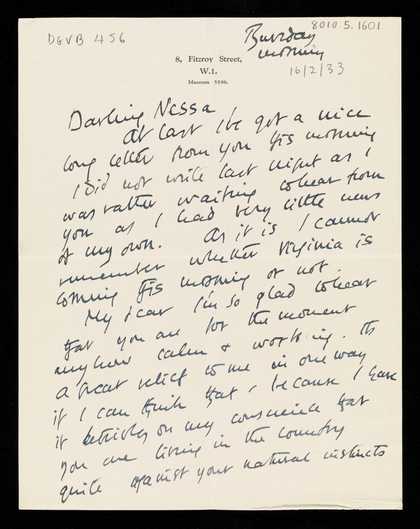 DGVB 456
8010.5.1601
8, Fitzroy Street,
W.1.
Museum
Thursday
morning
16/2/33
Darling Nessa
At last I've got a nice
long letter from you this morning
I did not write last night as I
was rather waiting to hear from
you as I had very little news
of my own. As it is I cannot
remember whether Virginia is
coming this morning or not.
My dear I'm so glad to hear
that you are for the moment
anyhow calm & working. It's
a great relief to me in one way
if I can think that, because I have
it terribly on my conscience that
you are living in the country
quite against your natural instincts